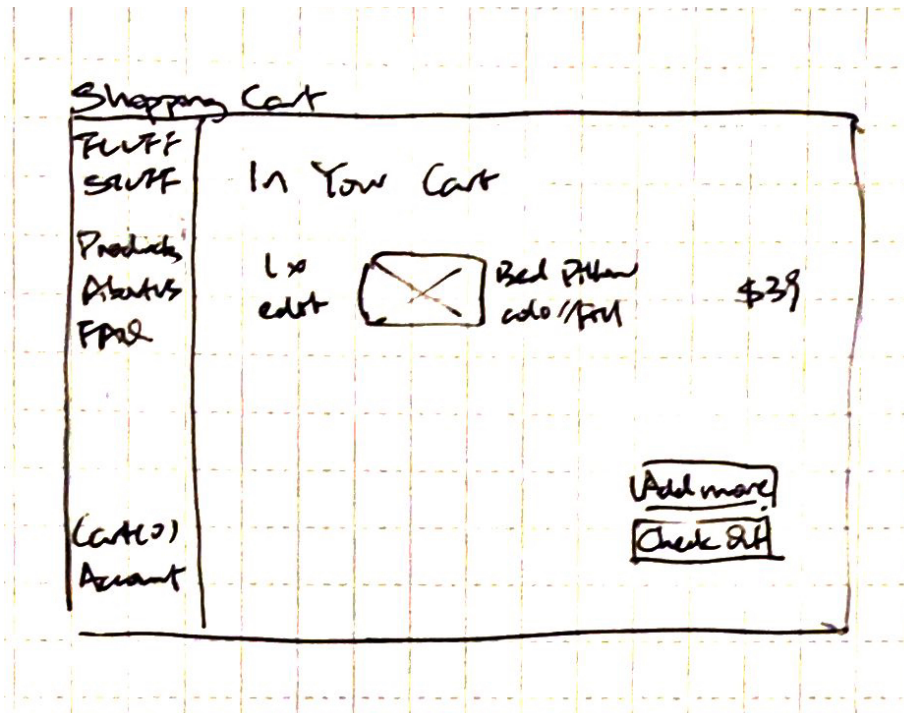 Shopping Cart
FLUFF
STUFF
Products
About Us
FAQ
Cart(0)
Account
In Your Cart
1x
edit
Bed Pillow
color/Fill
$39
Add more
Check Out